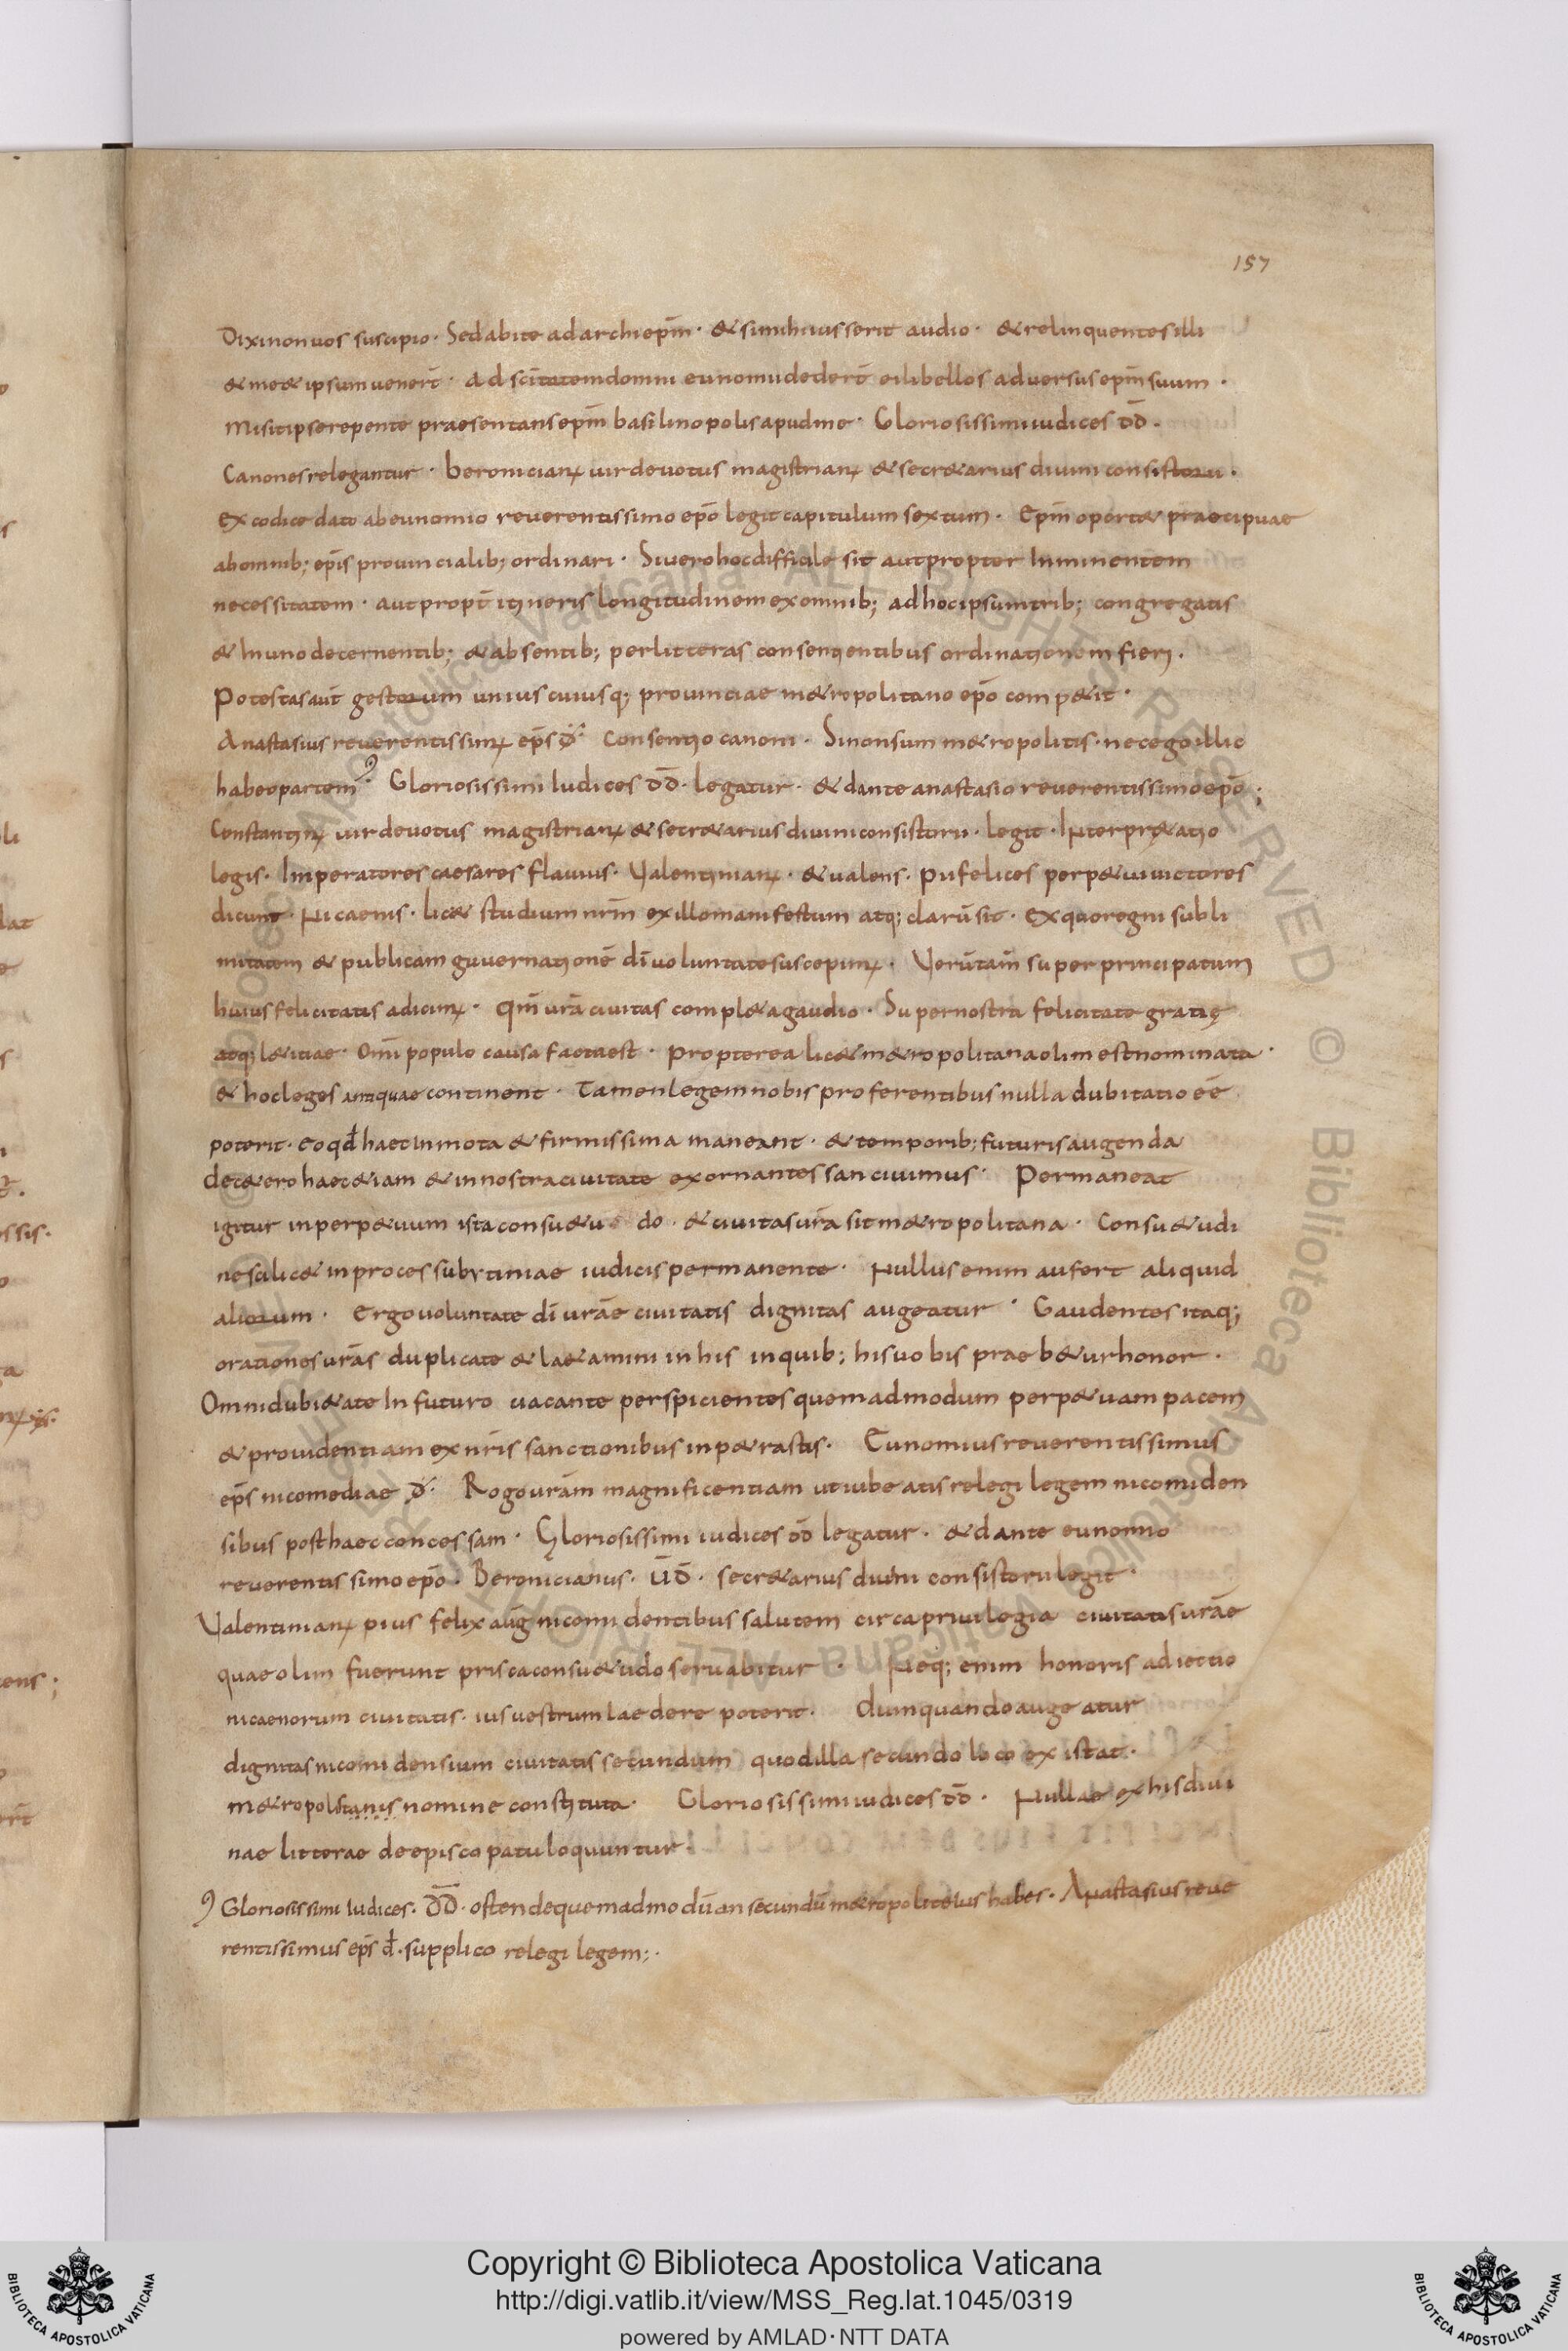 157
Dixi non vos suscipio · Sed abite ad archiepm̄ · & si mihi iusserit audio · & relinquentes illi
& me & ipsum venert̄ · Ad scītatem domni eunomii dedert̄ ei libellos adversus epm̄ suum ·
misit ipse repente praesentans epm̄ basilinopolis apud me · Gloriosissimi iudices d̄d̄ ·
Canones relegantur · beronicianꝰ vir devotus magistrianꝰ & secr&arius divini consistorii ·
ex codice dato ab eunomio reverentissimo epō legit capitulum sextum · Epm̄ oport& praecipuae
ab omnib; ep̄is provincialib; ordinari · Si vero hoc difficile sit aut propter Inminentem
necessitatem · aut propt̄ itineris longitudinem ex omnib; ad hoc ipsum trib; congregatis
& In uno decernentib; & absentib; per litteras consentientibus ordinationem fieri ·
Potestas aut̄ gestorum unius cuiusq; provinciae m&ropolitano epō comp&it ·
Anastasius reverentissimꝰ ep̄s đ · Consentio canoni · Si non sum m&ropolitis · nec ego illic
habeo partem · Gloriosissimi Iudices d̄d̄ · legatur · & dante anastasio reverentissimo epō ;
Constantinꝰ vir devotus magistrianꝰ & secr&arius divini consistorii · legit · Interpr&atio
legis · Imperatores caesares flavius · Valentinianꝰ · & valens · pii felices perp&ui victores
dicunt · Nicaenis · lic& studium nrm̄ ex illo manifestum atq; clarū sit · ex quo regni subli
mitatem & publicam guvernationē dī voluntate suscepimꝰ · Verūtam̄ super principatum
huius felicitatis adicimꝰ · qm̄ vrā civitas compl&a gaudio · Super nostra felicitate gratię
atq; l&itiae · Omī populo causa facta est · propterea lic& m&ropolitana olim est nominata ·
& hoc leges antiquae continent · Tamen legem nobis proferentibus nulla dubitatio eē
poterit · eo qđ haec inmota & firmissima maneant · & temporib; futuris augenda
dec&ero haec &iam & in nostra civitate exornantes sancivimus · Permaneat
igitur in perp&uum ista consu&u do · & civitas vrā sit m&ropolitana · Consu&udi
ne scilic& in processu bytiniae iudicis permanente · Nullus enim aufert aliquid
aliorum · Ergo voluntate dī vrāe civitatis dignitas augeatur · Gaudentes itaq;
orationes vrās duplicate & la&amini in his in quib; his vobis praeb&ur honor ·
Omni dubi&ate In futuro vacante perspicientes quemadmodum perp&uam pacem
& providentiam ex nrīs sanctionibus inp&rastis · Eunomius reverentissimus
ep̄s nicomediae đ · Rogo vrām magnificentiam ut iubeatis relegi legem nicomiden
sibus post haec concessam · Gloriosissimi iudices d̄d̄ legatur · & dante eunomio
reverentissimo epō · Beronicianus · v̄d̄ · secr&arius divini consistorii legit ·
Valentinianꝰ pius felix aūg nicomidentibus salutem circa privilegia civitatis vrāe
quae olim fuerunt prisca consu&udo servabitur · Neq; enim honoris adiectio
nicaenorum civitatis · ius vestrum laedere poterit · Dum quando augeatur
dignitas nicomidensium civitatis secundum quod illa secundo loco existat ·
m&ropolitanis nomine constituta · Gloriosissimi iudices d̄d̄ · Nullae ex his divi
nae litterae de episcopatu loquuntur ·
Gloriosissimi Iudices · D̄D̄ · ostende quemadmodū an secundū m&ropolite ius habes · Anastasius reve
rentissimus ep̄s đ · supplico relegi legem ;·
Copyright © Biblioteca Apostolica Vaticana
http://digi.vatlib.it/view/MSS_Reg.lat.1045/0319
powered by AMLAD·NTT DATA